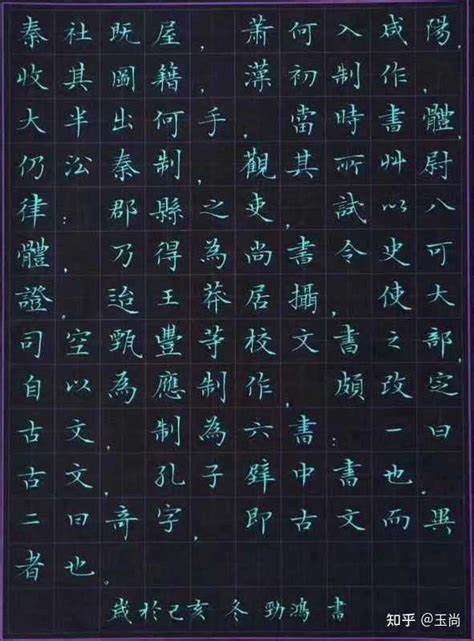 秦社既屋，蕭何入咸陽，
收其圖籍，漢初制作，
大半出何手，當時書體，
仍沿秦制，觀其所艸尉
律：郡縣之吏，試以八
體，乃得為尚書令史可
證，迨王莽居攝，使大
司空甄豐等校文書之部，
自以為應制作，頗改定
古文，制為六書：一曰
古文，孔子壁中書也。
二曰奇字，即古文而異
者也。
歲於己亥冬勁鴻書
知乎 @玉尚